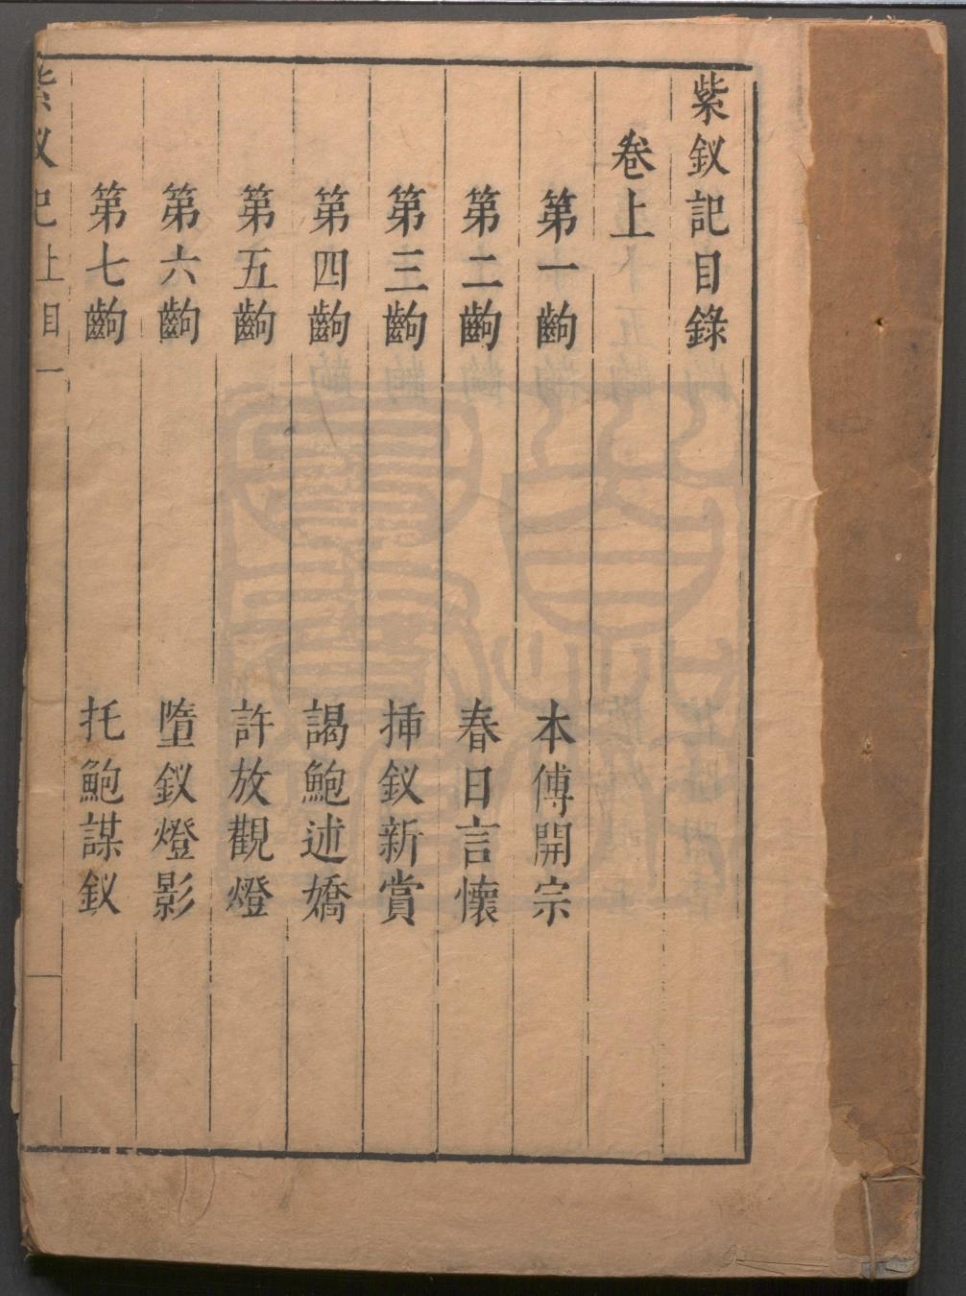 紫釵記目錄
卷上
第一齣 本傳開宗
第二齣 春日言懷
第三齣 揷釵新賞
第四齣 謁鮑述嬌
第五齣 許放觀燈
第六齣 墮釵燈影
第七齣 托鮑謀釵
紫釵記 上目 一